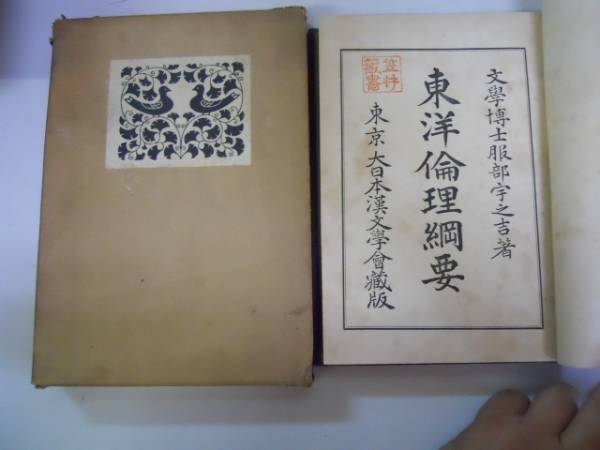 文學博士服部宇之吉著
東洋倫理綱要
東京 大日本漢文學會藏版